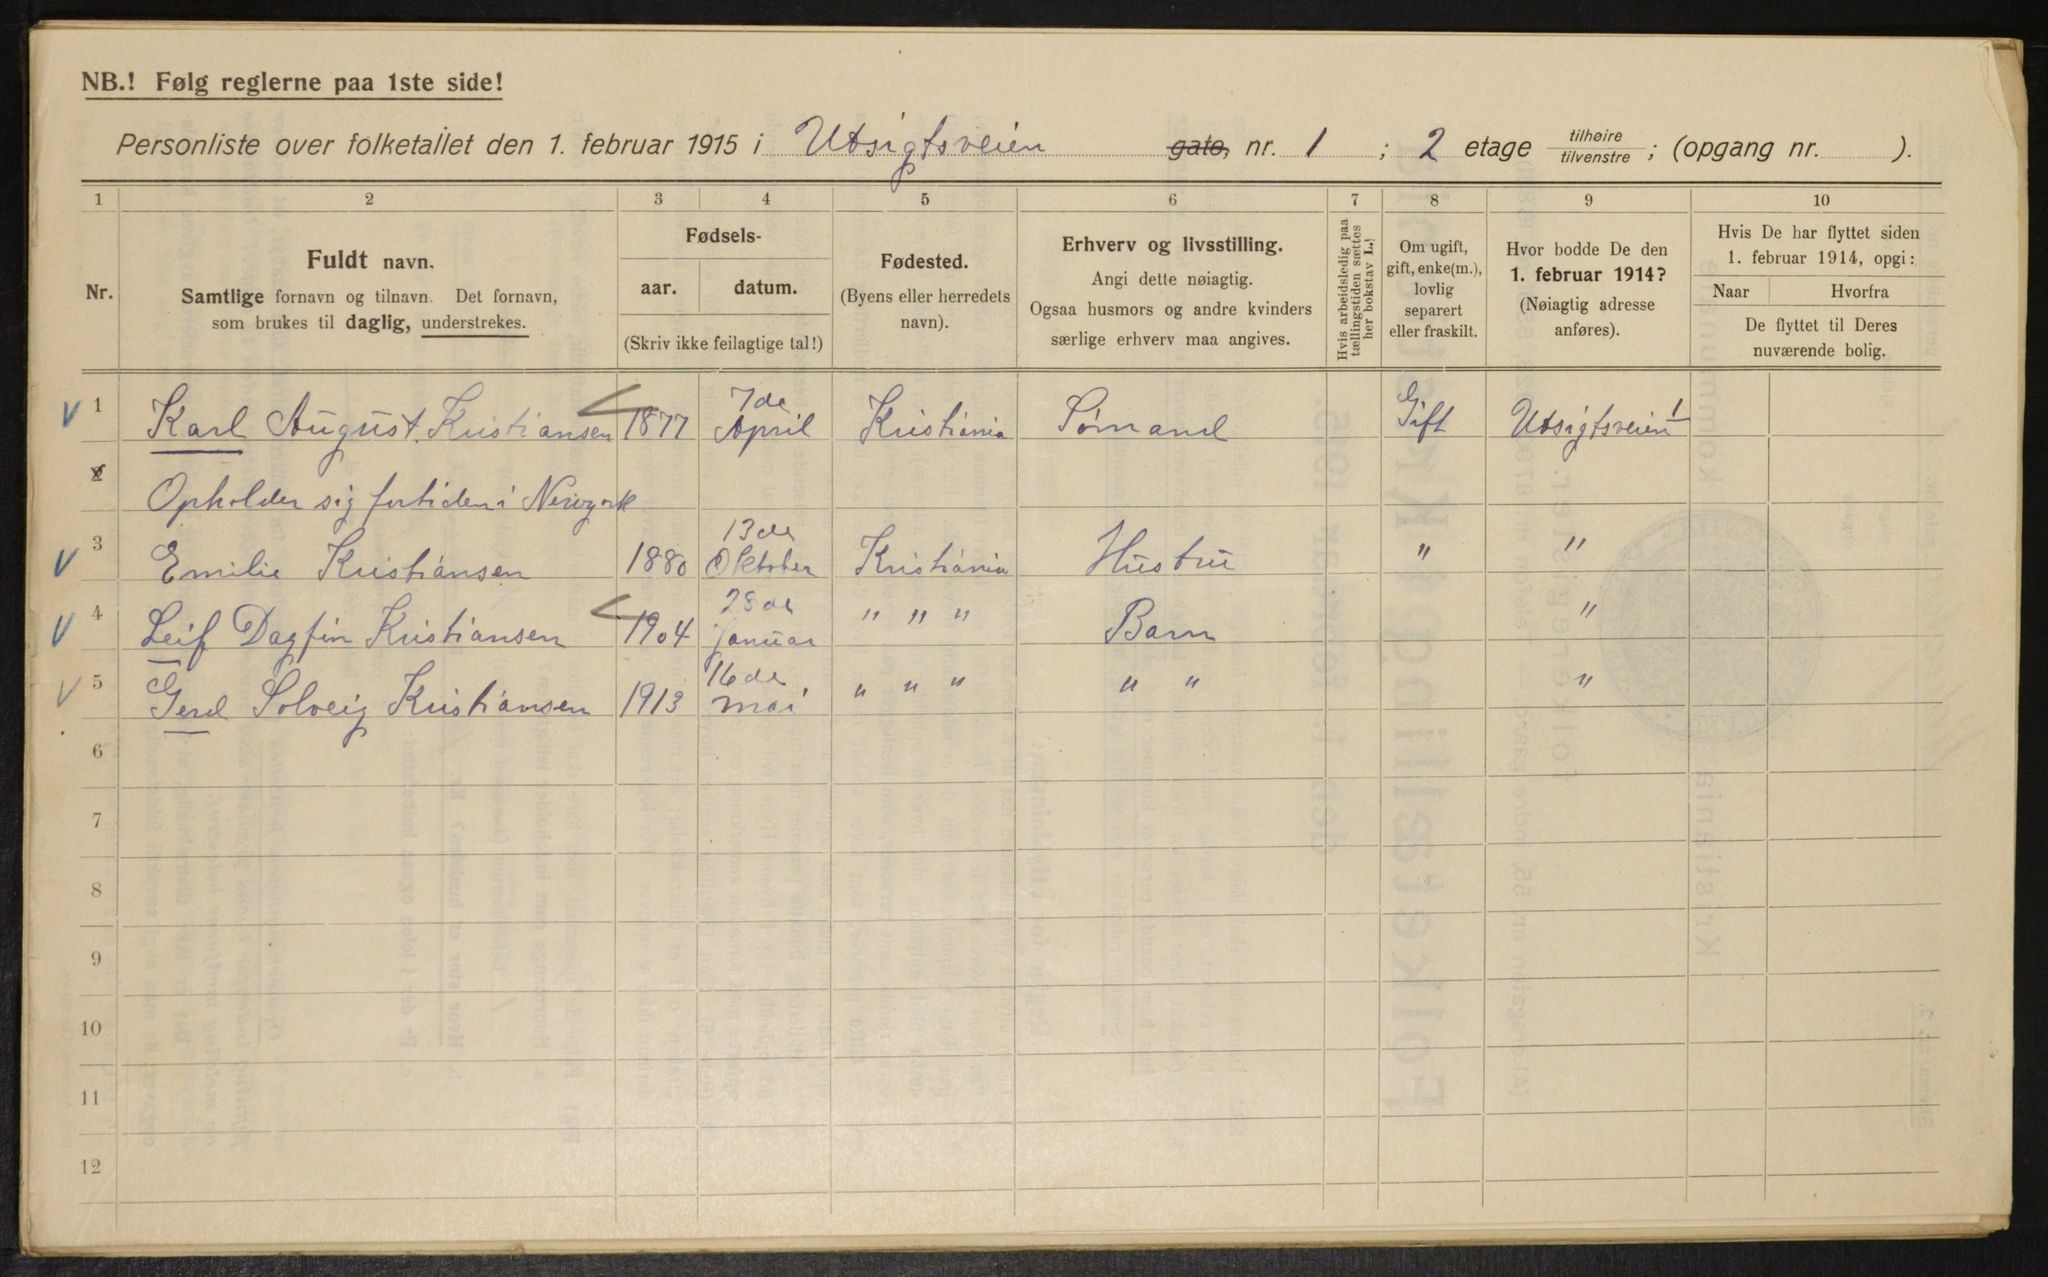 NB.! Følg reglerne paa 1ste side!
Personliste over folketallet den 1. februar 1915 i Utsigtsveien gate, nr. 1 ; 2 etage tilhøire tilvenstre ; (opgang nr. ).
1 2 3 4 5 6 7 8 9 10
Nr.
Fuldt navn.
Samtlige fornavn og tilnavn. Det fornavn,
som brukes til daglig, understrekes.
Fødsels-
aar. datum.
(Skriv ikke feilagtige tal!)
Fødested.
(Byens eller herredets
navn).
Erhverv og livsstilling.
Angi dette nøiagtig.
Ogsaa husmors og andre kvinders
særlige erhverv maa angives.
Hvis arbeidsledig paa
tællingstiden sættes
her bokstav L.!
Om ugift,
gift, enke(m.),
lovlig
separert
eller fraskilt.
Hvor bodde De den
1. februar 1914?
(Nøiagtig adresse
anføres).
Hvis De har flyttet siden
1. februar 1914, opgi:
Naar Hvorfra
De flyttet til Deres
nuværende bolig.
1 Karl August Kristiansen 1877 7de April Kristiania Sømand Gift Utsigtsveien 1
2 Opholder sig fortiden i Newyork
3 Emilie Kristiansen 1880 13de Oktober Kristiania Hustru " "
4 Leif Dagfin Kristiansen 1904 28de Januar " " " Barn "
5 Gerd Solveig Kristiansen 1913 16de mai " " " " " "
6
7
8
9
10
11
12